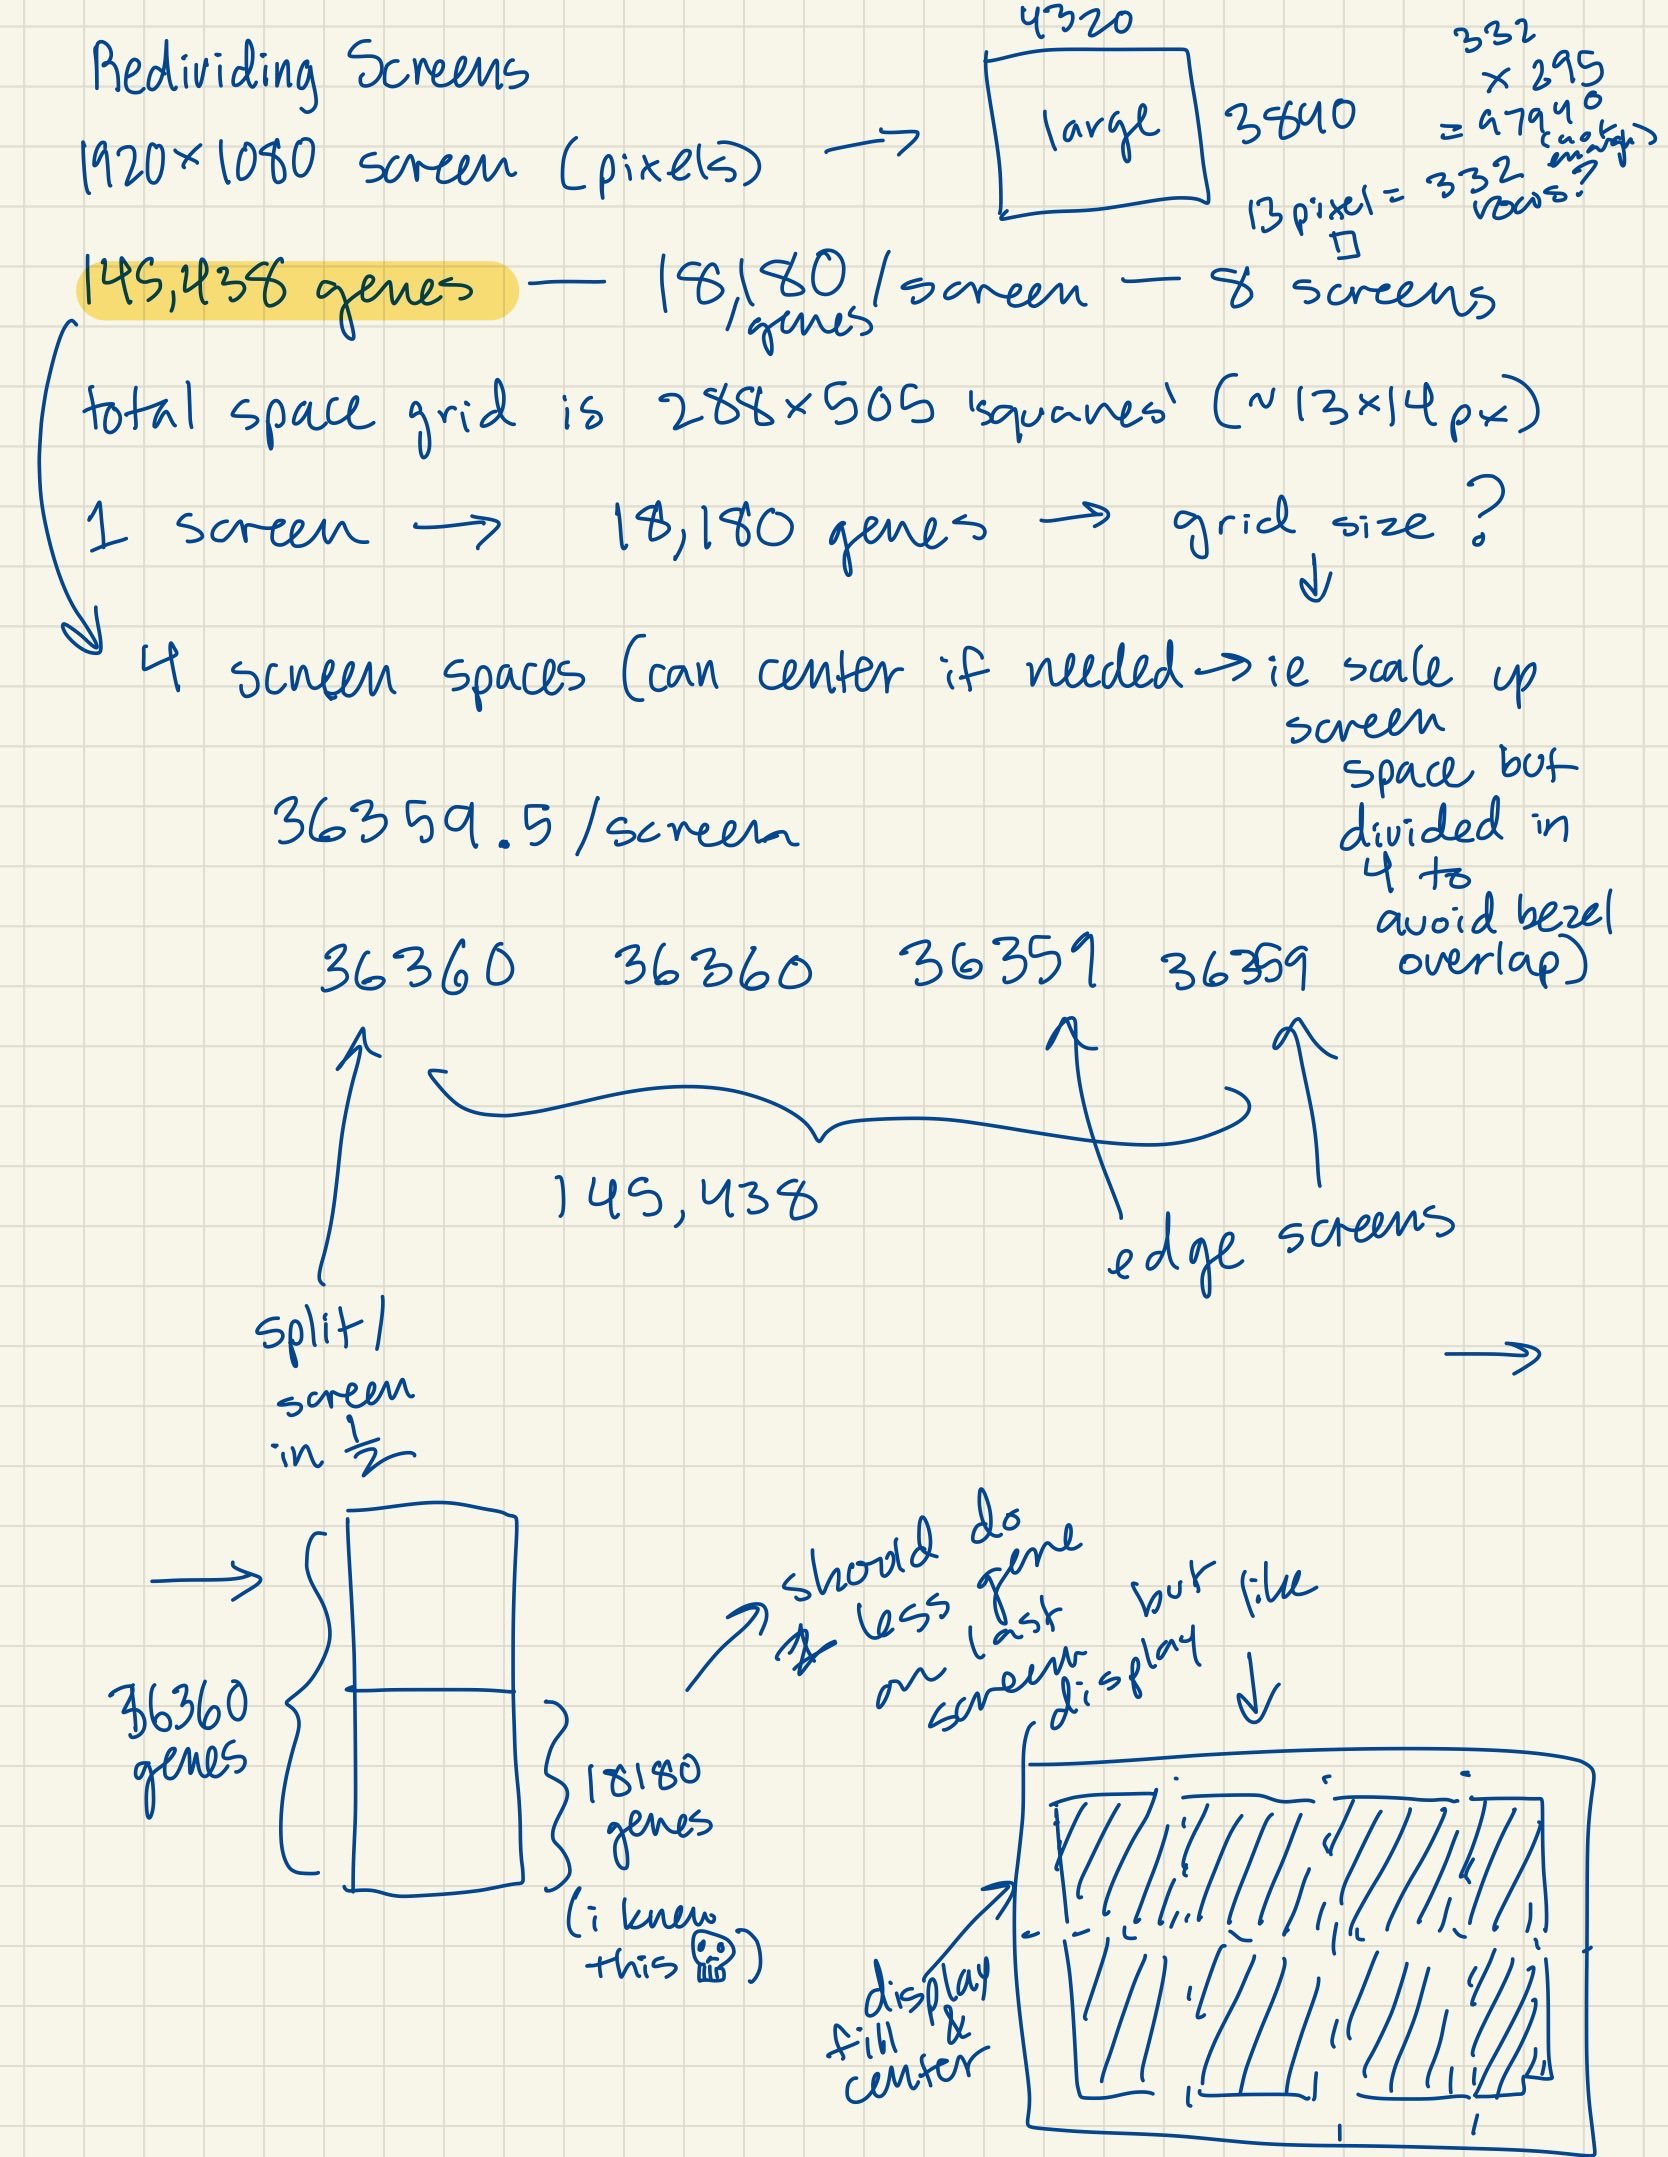 Redividing Screens
4320
large
3840
332
x 295
= 97940
(not enough)
13 pixel = 332
rows?
1920×1080 screen (pixels) →
145,438 genes — 18,180 /screen — 8 screens
/genes
total space grid is 288×505 'squares' (~13×14px)
1 screen → 18,180 genes → grid size ?
4 screen spaces (can center if needed → ie scale up
screen
space but
divided in
4 to
avoid bezel
overlap)
36359.5/screen
36360 36360 36359 36359
145,438
edge screens
split 1
screen
in 1/2
→
36360
genes
18180
genes
(i knew
this 💀)
should do
less gene
on last
screen
but like
display
display
fill &
center